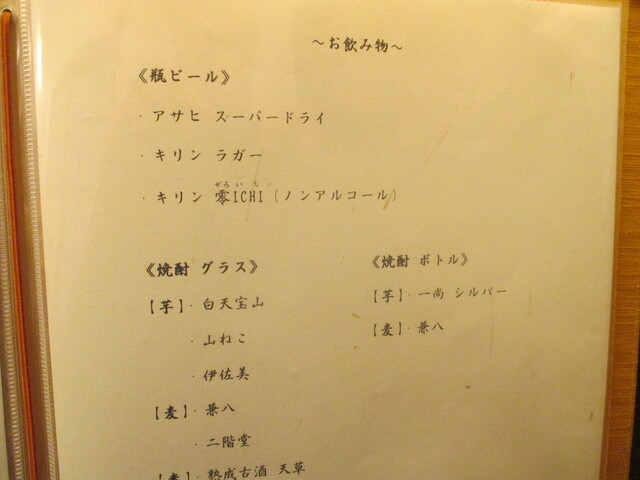 ～お飲み物～
《瓶ビール》
・アサヒ スーパードライ
・キリン ラガー
ぜろいち
・キリン 零ICHI（ノンアルコール）
《焼酎 グラス》
【芋】・白天宝山
・山ねこ
・伊佐美
【麦】・兼八
・二階堂
【麦】・熟成古酒 天草
《焼酎 ボトル》
【芋】・一尚 シルバー
【麦】・兼八